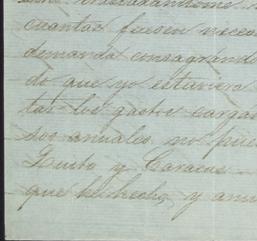 cuantas fuesen necesa
demanda consagrando
do que yo estaviera
tas los gastos cargas
sos anuales, no pue
Quito y Caracas
que he hecho, y anu